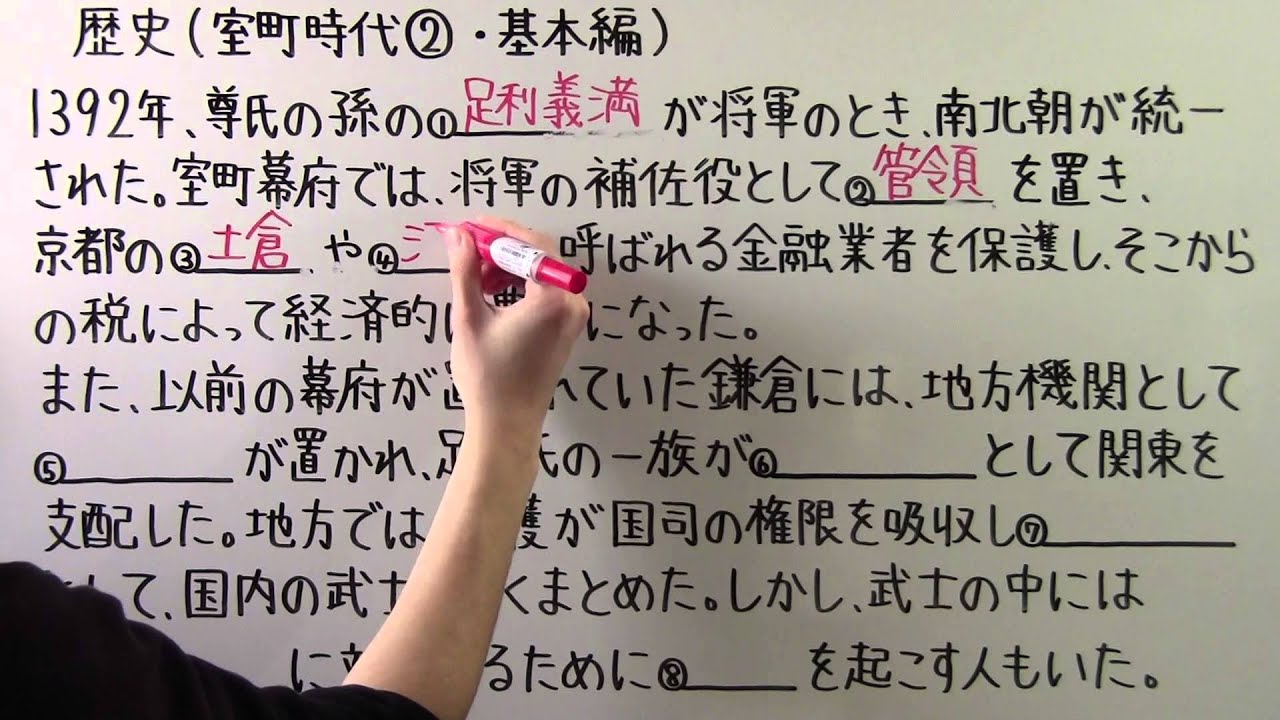 歴史(室町時代②・基本編)
1392年、尊氏の孫の①足利義満が将軍のとき、南北朝が統一
された。室町幕府では、将軍の補佐役として②管領を置き、
京都の③土倉や④ 呼ばれる金融業者を保護し、そこから
の税によって経済的に になった。
また、以前の幕府が れていた鎌倉には、地方機関として
⑤______が置かれ、足 氏の一族が⑥______として関東を
支配した。地方では 護が国司の権限を吸収し⑦______
して、国内の武士 くまとめた。しかし、武士の中には
に るために⑧____を起こす人もいた。